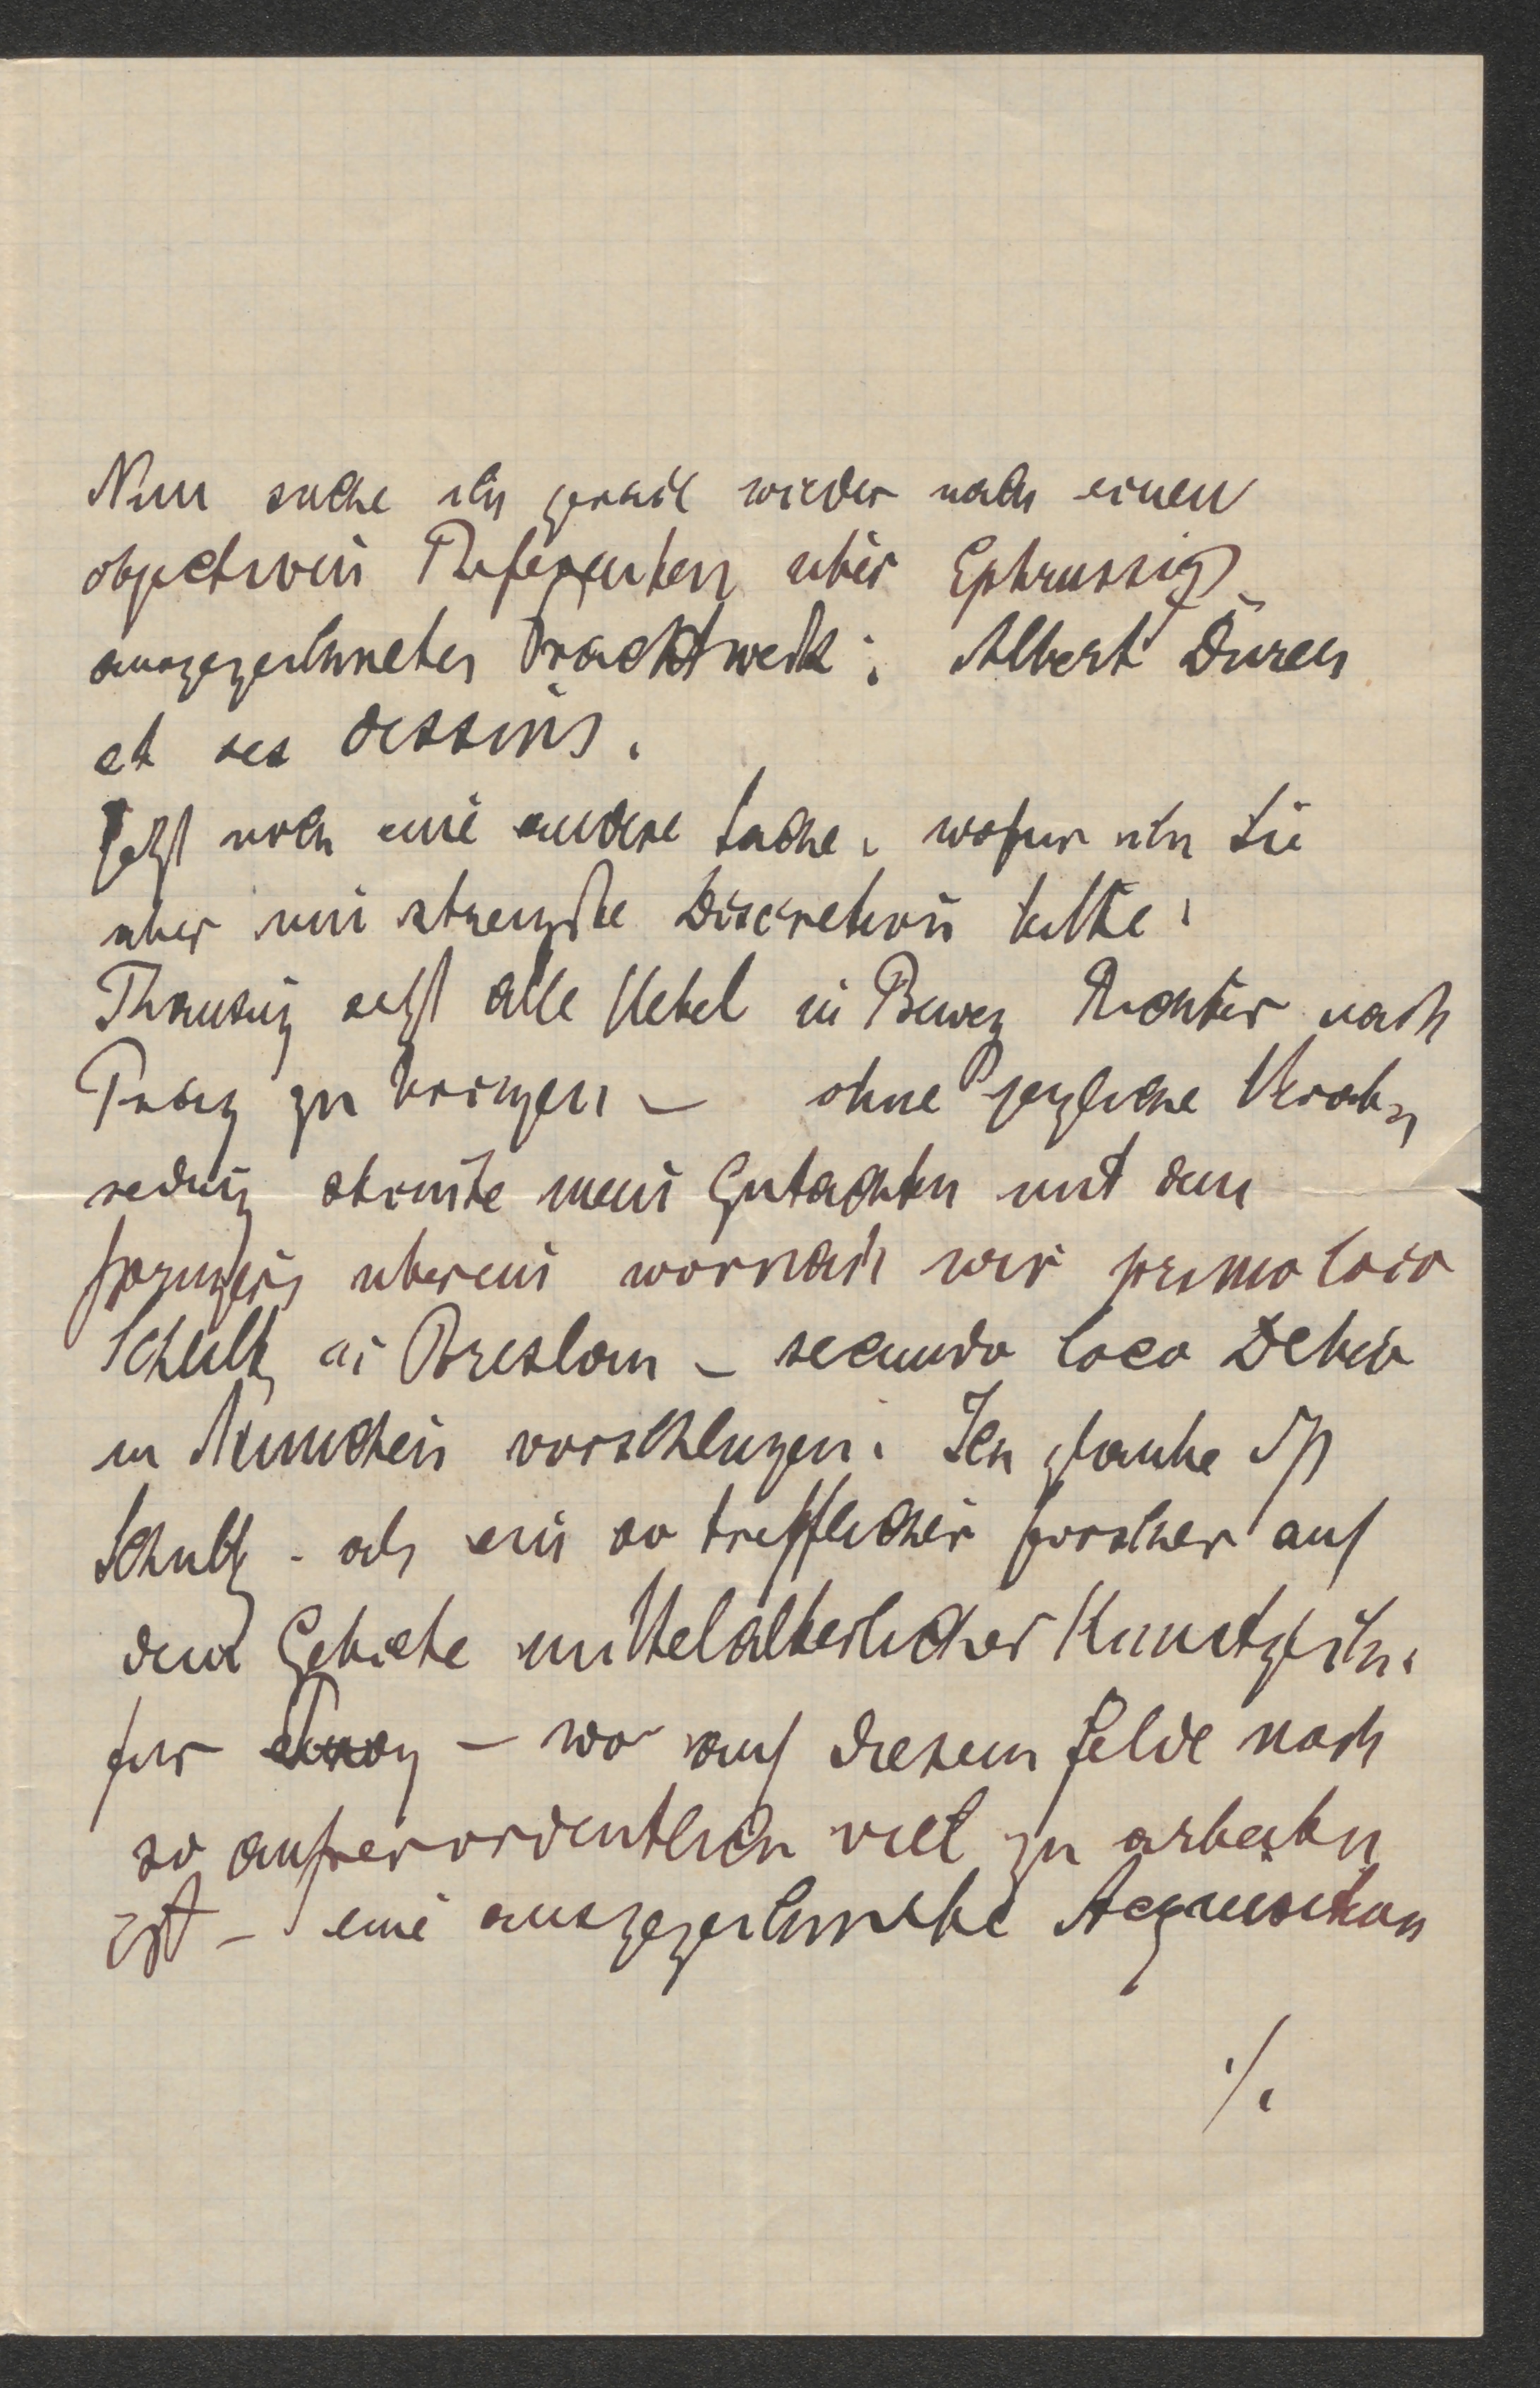 Nun suche ich gerade wieder nach einen
objectiven Referenten über Ephrussis
ausgezeichnetes Prachtwerk: Albert Dürer
et ses dessins.
Jetzt noch eine andere Sache, wofür ich Sie
aber um strengste Discretion bitte:
Thausing setzt alle Hebel in Beweg Richter nach
Prag zu bringen – ohne jegliche Verab-
redung stimmte mein Gutachten mit dem
Springers überein wornach wir primo loco
Schultz in Breslau – secundo loco Dehio
in München vorschlugen. Ich glaube Ap
Schultz – als ein so trefflicher Forscher auf
dem Gebiete mittelalterlicher Kunstgsch.
für Prag – wo auf diesem Felde noch
so außerordentlich viel zu arbeiten
ist – eine ausgezeichnete Acquisition
./.